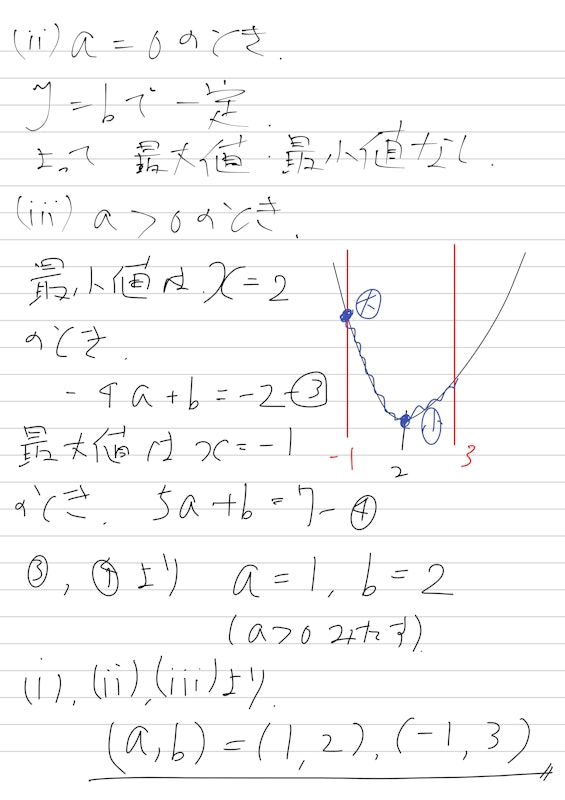 (ii) a = 0 のとき.
y = b で 一定.
よって 最大値・最小値なし.
(iii) a > 0 のとき.
最小値は x = 2
のとき.
-4a + b = -2 - ③
最大値は x = -1
のとき. 5a + b = 7 - ④
大
小
-1
2
3
③, ④ より a = 1, b = 2
(a > 0 みたす)
(i), (ii), (iii) より.
(a, b) = (1, 2), (-1, 3)